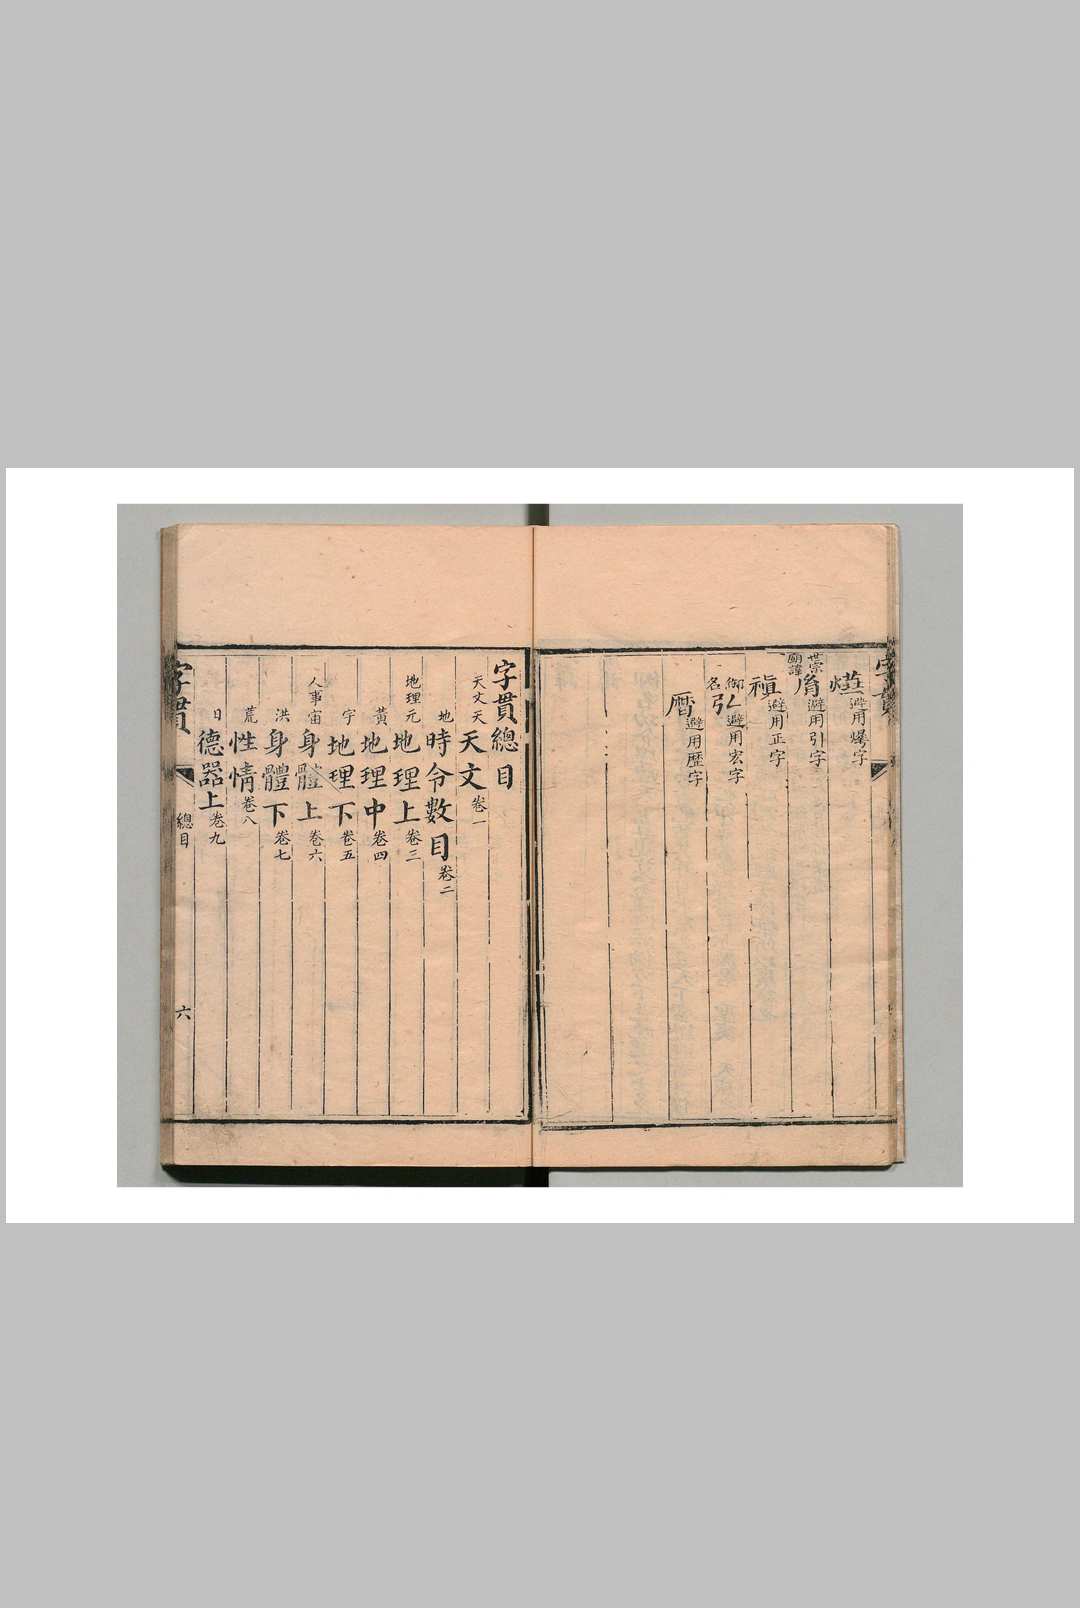 字貫
燁避用字
世宗廟諱胤避用引字
禛避用正字
御名弘避用宏字
曆避用歴字
字貫總目
天文天天文卷一
地時令數目卷二
地理元地理上卷三
黃地理中卷四
宇地理下卷五
人事宙身體上卷六
洪身體下卷七
荒性情卷八
日德器上卷九
字貫
總目
六